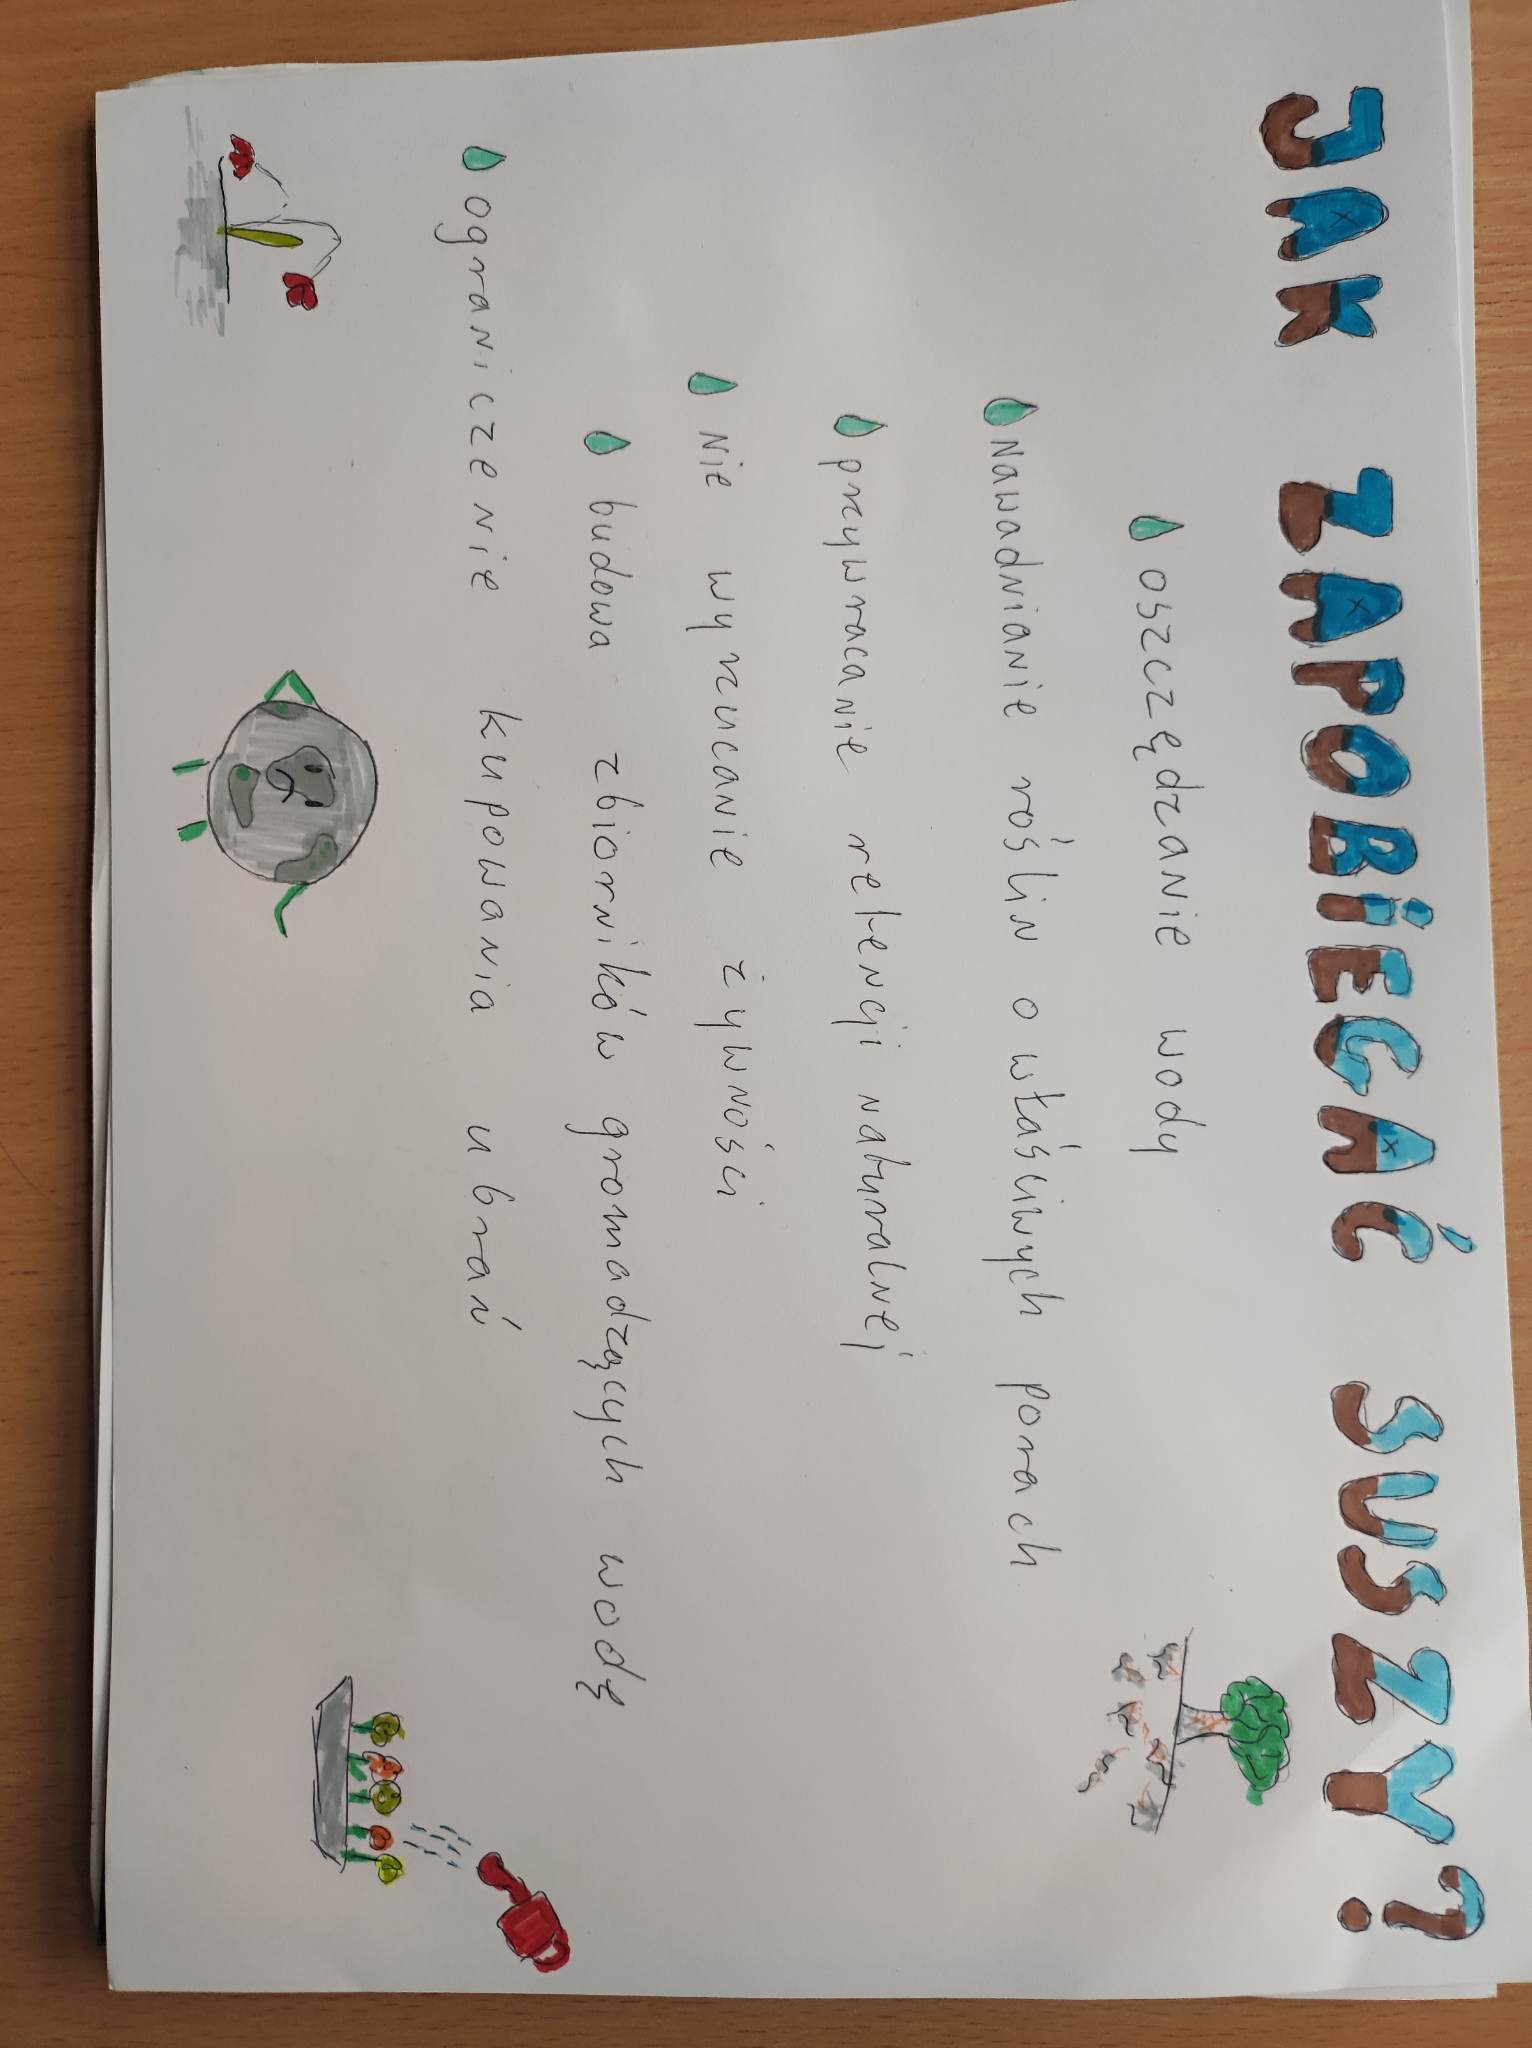 JAK ZAPOBIEGAĆ SUSZY?
oszczędzanie wody
nawadnianie roślin o właściwych porach
przywracanie retencji naturalnej
nie wyrzucanie żywności
budowa zbiorników gromadzących wodę
ograniczenie kupowania ubrań